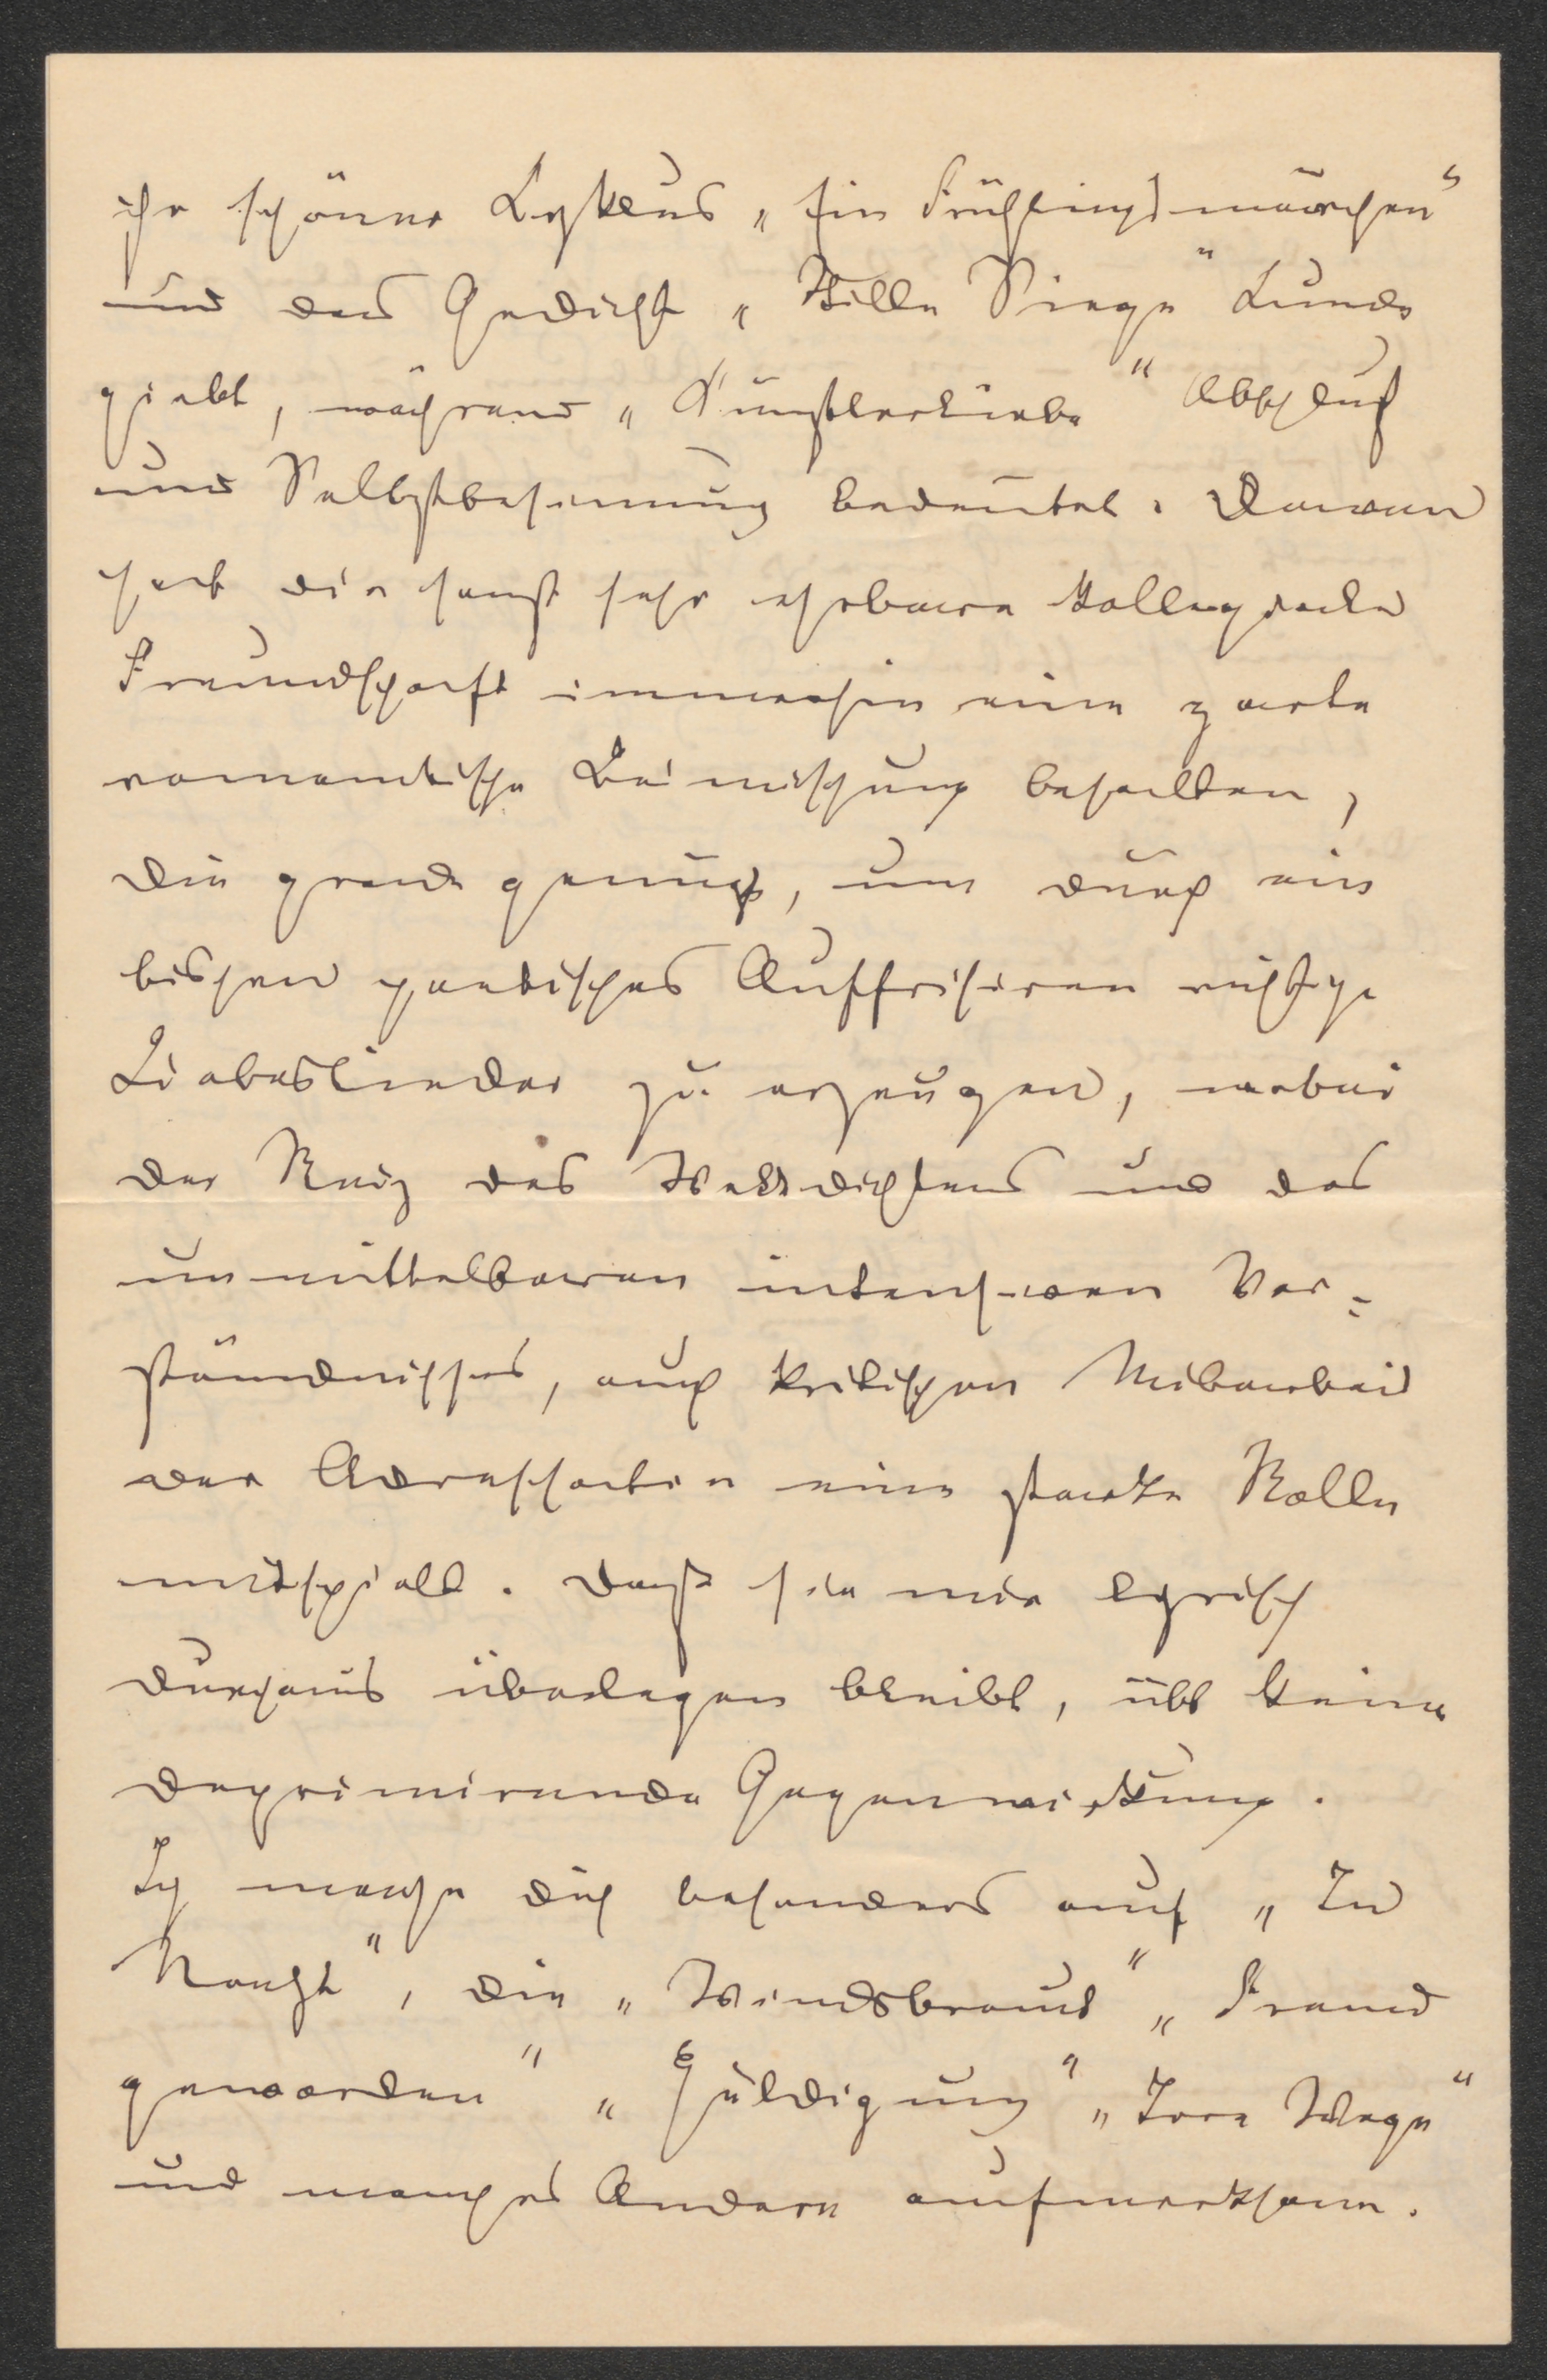 ihr schöner Cyklus „Ein Frühlingsmärchen"
und das Gedicht „Stille Siege" Kunde
giebt, während „Künstlerliebe" Abschluß
und Selbstbesinnung bedeutet. Davon
hat die sonst sehr ehrbare kollegiale
Freundschaft immerhin eine zarte
romantische Beimischung behalten,
die grade genügt, um durch ein
bischen poetisches Auffrisiren richtige
Liebeslieder zu erzeugen, wobei
der Reiz des Wettdichtens und des
unmittelbaren intensiven Ver=
ständnisses, auch kritischen Mitarbeit
der Adressatin eine starke Rolle
mitspielt. Daß sie mir lyrisch
durchaus überlegen bleibt, übt keine
deprimirende Gegenwirkung.
Ich mache dich besonders auf „In
Nacht", die „Windsbraut" „Fremd
geworden" „Huldigung" „Irre Wege"
und manches Andere aufmerksam.